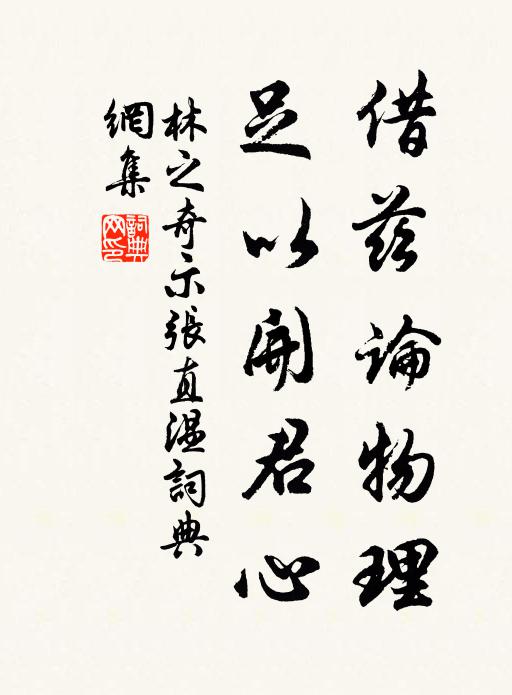 借茲論物理
足以開君心
林之奇示張直溫詞典
網集
詞典網印